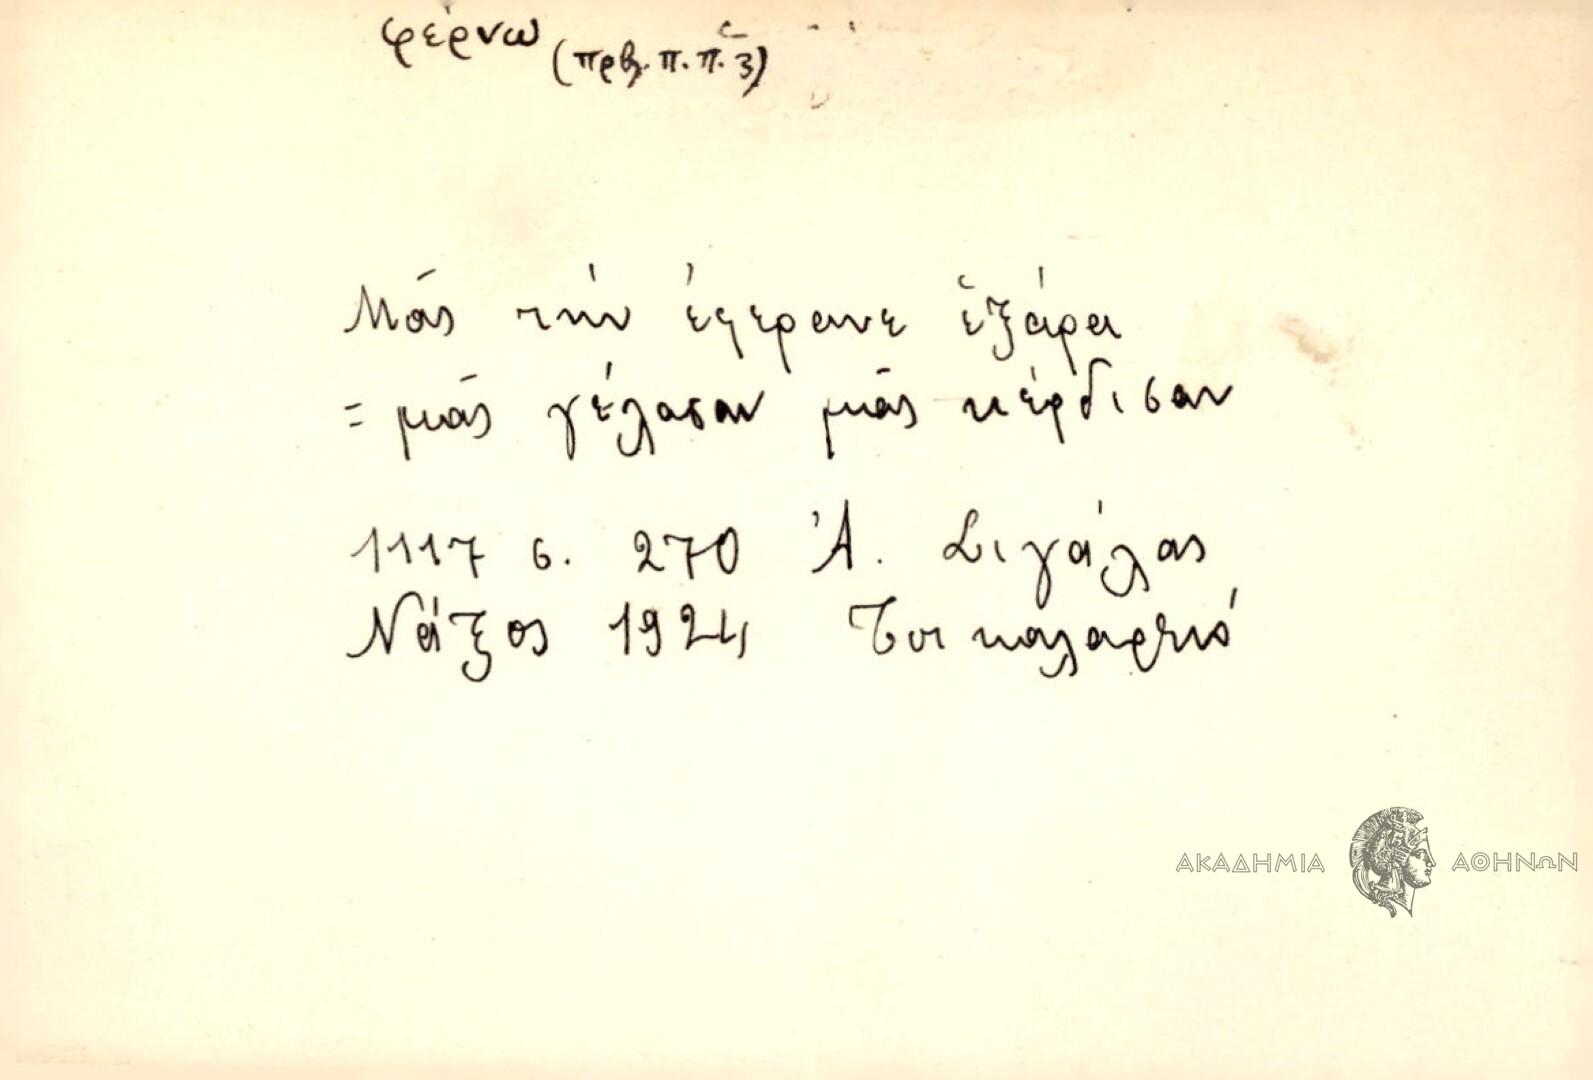 φέρνω
(πρβ. π. π. ξ)
Μᾶς τὴν ἐφερανε ἑξάρα
= μᾶς γέλασαν μᾶς κέρδισαν
1117 σ. 270 Ἀ. Σιγάλας
Νάξος 1924 Τσικαλαριό
ΑΚΑΔΗΜΙΑ ΑΘΗΝΩΝ